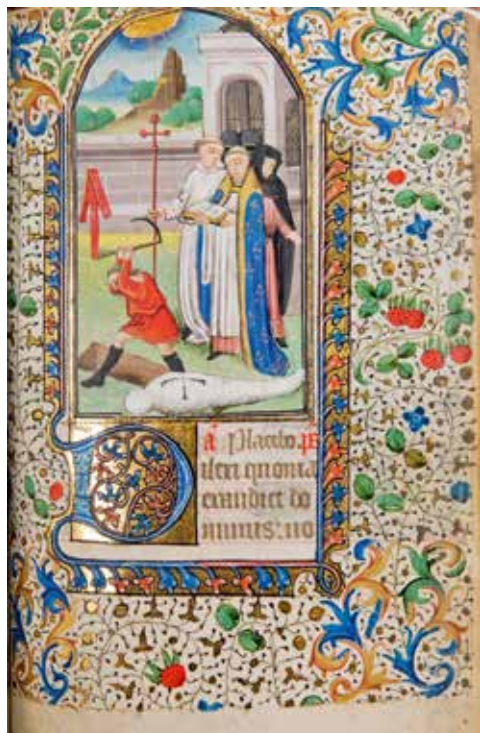 añ Placebo. ps
Dilexi quonia
exaudiet do
minus: uo